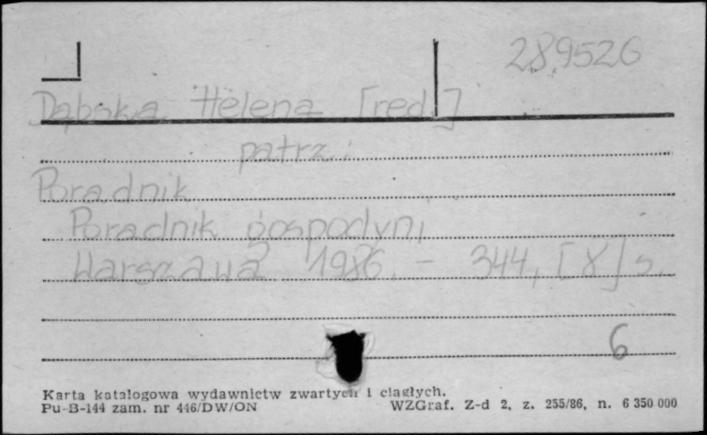 289526
Dąbska Helena [red.]
patrz:
Poradnik
Poradnik gospodyni
Warszawa 1986. - 344, [8] s.
6
Karta katalogowa wydawnictw zwartych i ciągłych.
Pu-B-144 zam. nr 446/DW/ON WZGraf. Z-d 2, z. 255/86, n. 6 350 000